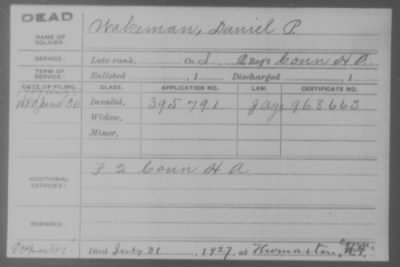 DEAD
NAME OF SOLDIER: Wakeman, Daniel P.
SERVICE: Late rank, Co. I, 2 Reg't Conn H A
TERM OF SERVICE: Enlisted , 1 Discharged , 1
DATE OF FILING. CLASS. APPLICATION NO. LAW. CERTIFICATE NO.
1880 June 30 Invalid, 395 791 968663
Widow,
Minor,
ADDITIONAL SERVICES: F 2 Conn H A
REMARKS:
Died July 31, 1927, at Thomaston,